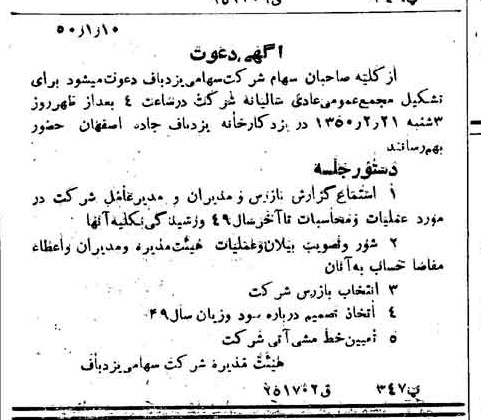 ۵۰/۱/۱۰
آگهی دعوت
از کلیه صاحبان سهام شرکت سهامی یزدباف دعوت میشود برای
تشکیل مجمع عمومی عادی سالیانه شرکت در ساعت ٤ بعد از ظهر روز
۳شنبه ۱۳۵۰/۲/۲۱ در یزد کارخانه یزدباف جاده اصفهان حضور
بهم رسانند
دستور جلسه
۱ استماع گزارش بازرس و مدیران و مدیر عامل شرکت در
مورد عملیات و محاسبات تا آخر سال ٤۹ و رسیدگی بکلیه آنها
۲ شور و تصویب بیلان و عملیات هیئت مدیره و مدیران و اعطاء
مفاصا حساب به آنان
۳ انتخاب بازرس شرکت
٤ اتخاذ تصمیم درباره سود و زیان سال ۴۹
۵ تعیین خط مشی آتی شرکت
هیئت مدیره شرکت سهامی یزدباف
پ۳٤۷ ق۲۵۱۷۰۲